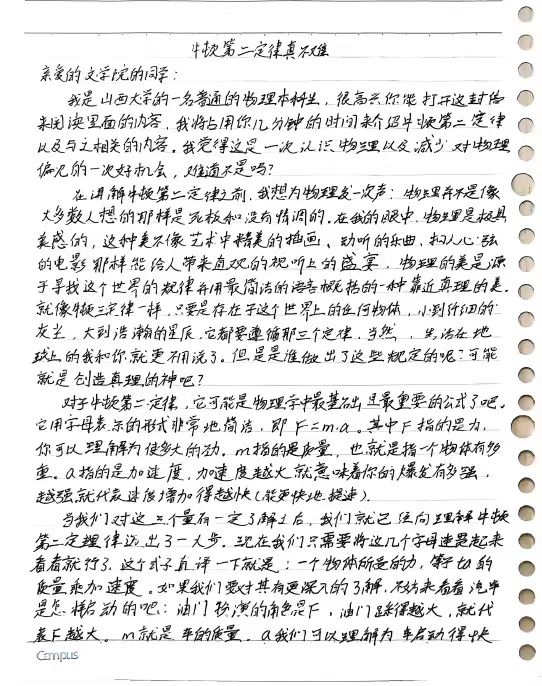 牛顿第二定律真不难
亲爱的文学院的同学:
我是山西大学的一名普通的物理本科生,很高兴你能打开这封信
来阅读里面的内容,我将占用你几分钟的时间来介绍牛顿第二定律
以及与之相关的内容。我觉得这是一次认识物理以及减少对物理
偏见的一次好机会,难道不是吗?
在讲解牛顿第二定律之前,我想为物理发一次声:物理并不是像
大多数人想的那样是死板和没有情调的。在我的眼中,物理是极具
美感的,这种美不像艺术中精美的插画、动听的乐曲、扣人心弦
的电影那样能给人带来直观的视听上的盛宴,物理的美是源
于寻找这个世界的规律并用最简洁的语言概括的一种靠近真理的美。
就像牛顿三定律一样,只要是存在于这个世界上的任何物体,小到纤细的
灰尘,大到浩瀚的星辰,它都要遵循那三个定律,当然,生活在地
球上的我和你就更不用说了。但是是谁做出了这些规定的呢?可能
就是创造真理的神吧?
对于牛顿第二定律,它可能是物理学中最基础也是最重要的公式了吧。
它用字母表示的形式非常地简洁,即F=m·a。其中F指的是力,
你可以理解为使多大的劲。m指的是质量,也就是指一个物体有多
重。a指的是加速度,加速度越大就意味着你的爆发有多强,
越强就代表速度增加得越快(能更快地提速)。
当我们对这三个量有一定了解之后,我们就已经向理解牛顿
第二定理律迈出了一大步。现在我们只需要将这几个字母连起来
看看就行了,这个式子直译一下就是:一个物体所受的力,等于它的
质量乘加速度。如果我们要对其有更深入的了解,不妨来看看汽车
是怎样启动的吧:油门扮演的角色是F,油门踩得越大,就代
表F越大。m就是车的质量。a我们可以理解为车启动得快
Campus